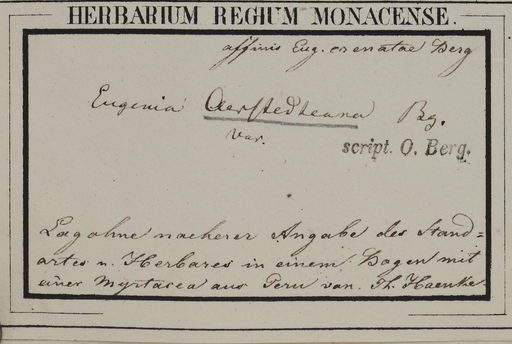 HERBARIUM REGIUM MONACENSE.
affinis Eug. crenatae Berg
Eugenia Oerstedteana Bg.
var.
script. O. Berg.
Lag ohne naeherer Angabe des Stand=
ortes u. Herbares in einem Bogen mit
einer Myrtacea aus Peru von Th. Haenke.